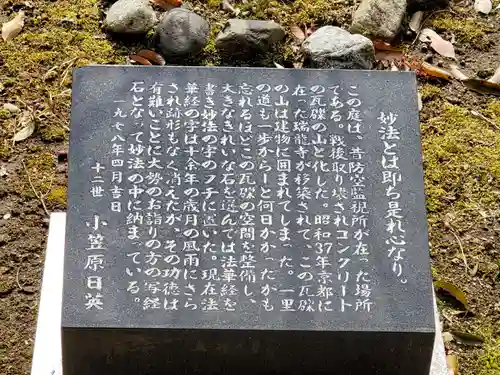 妙法とは即ち是れ心なり。
この庭は、昔防空監視所が在った場所
である。戦後取り壊されコンクリート
の瓦礫の山と化した。昭和37年京都に
在った瑞龍寺が移築されて、この瓦礫
の山は建物に囲まれてしまった。一里
の道も一歩からーと何日かかったかも
忘れるほどこの瓦礫の空間を整備し、
大きなきれいな石を選んでは法華経を
書き妙法の字のフチに置いた。現在法
華経の字は十余年の歳月の風雨にさら
され跡形もなく消えたが、その功徳は
有難いことに大勢のお詣りの方の写経
石となって妙法の中に納まっている。
一九七八年四月吉日
十二世 小笠原日英